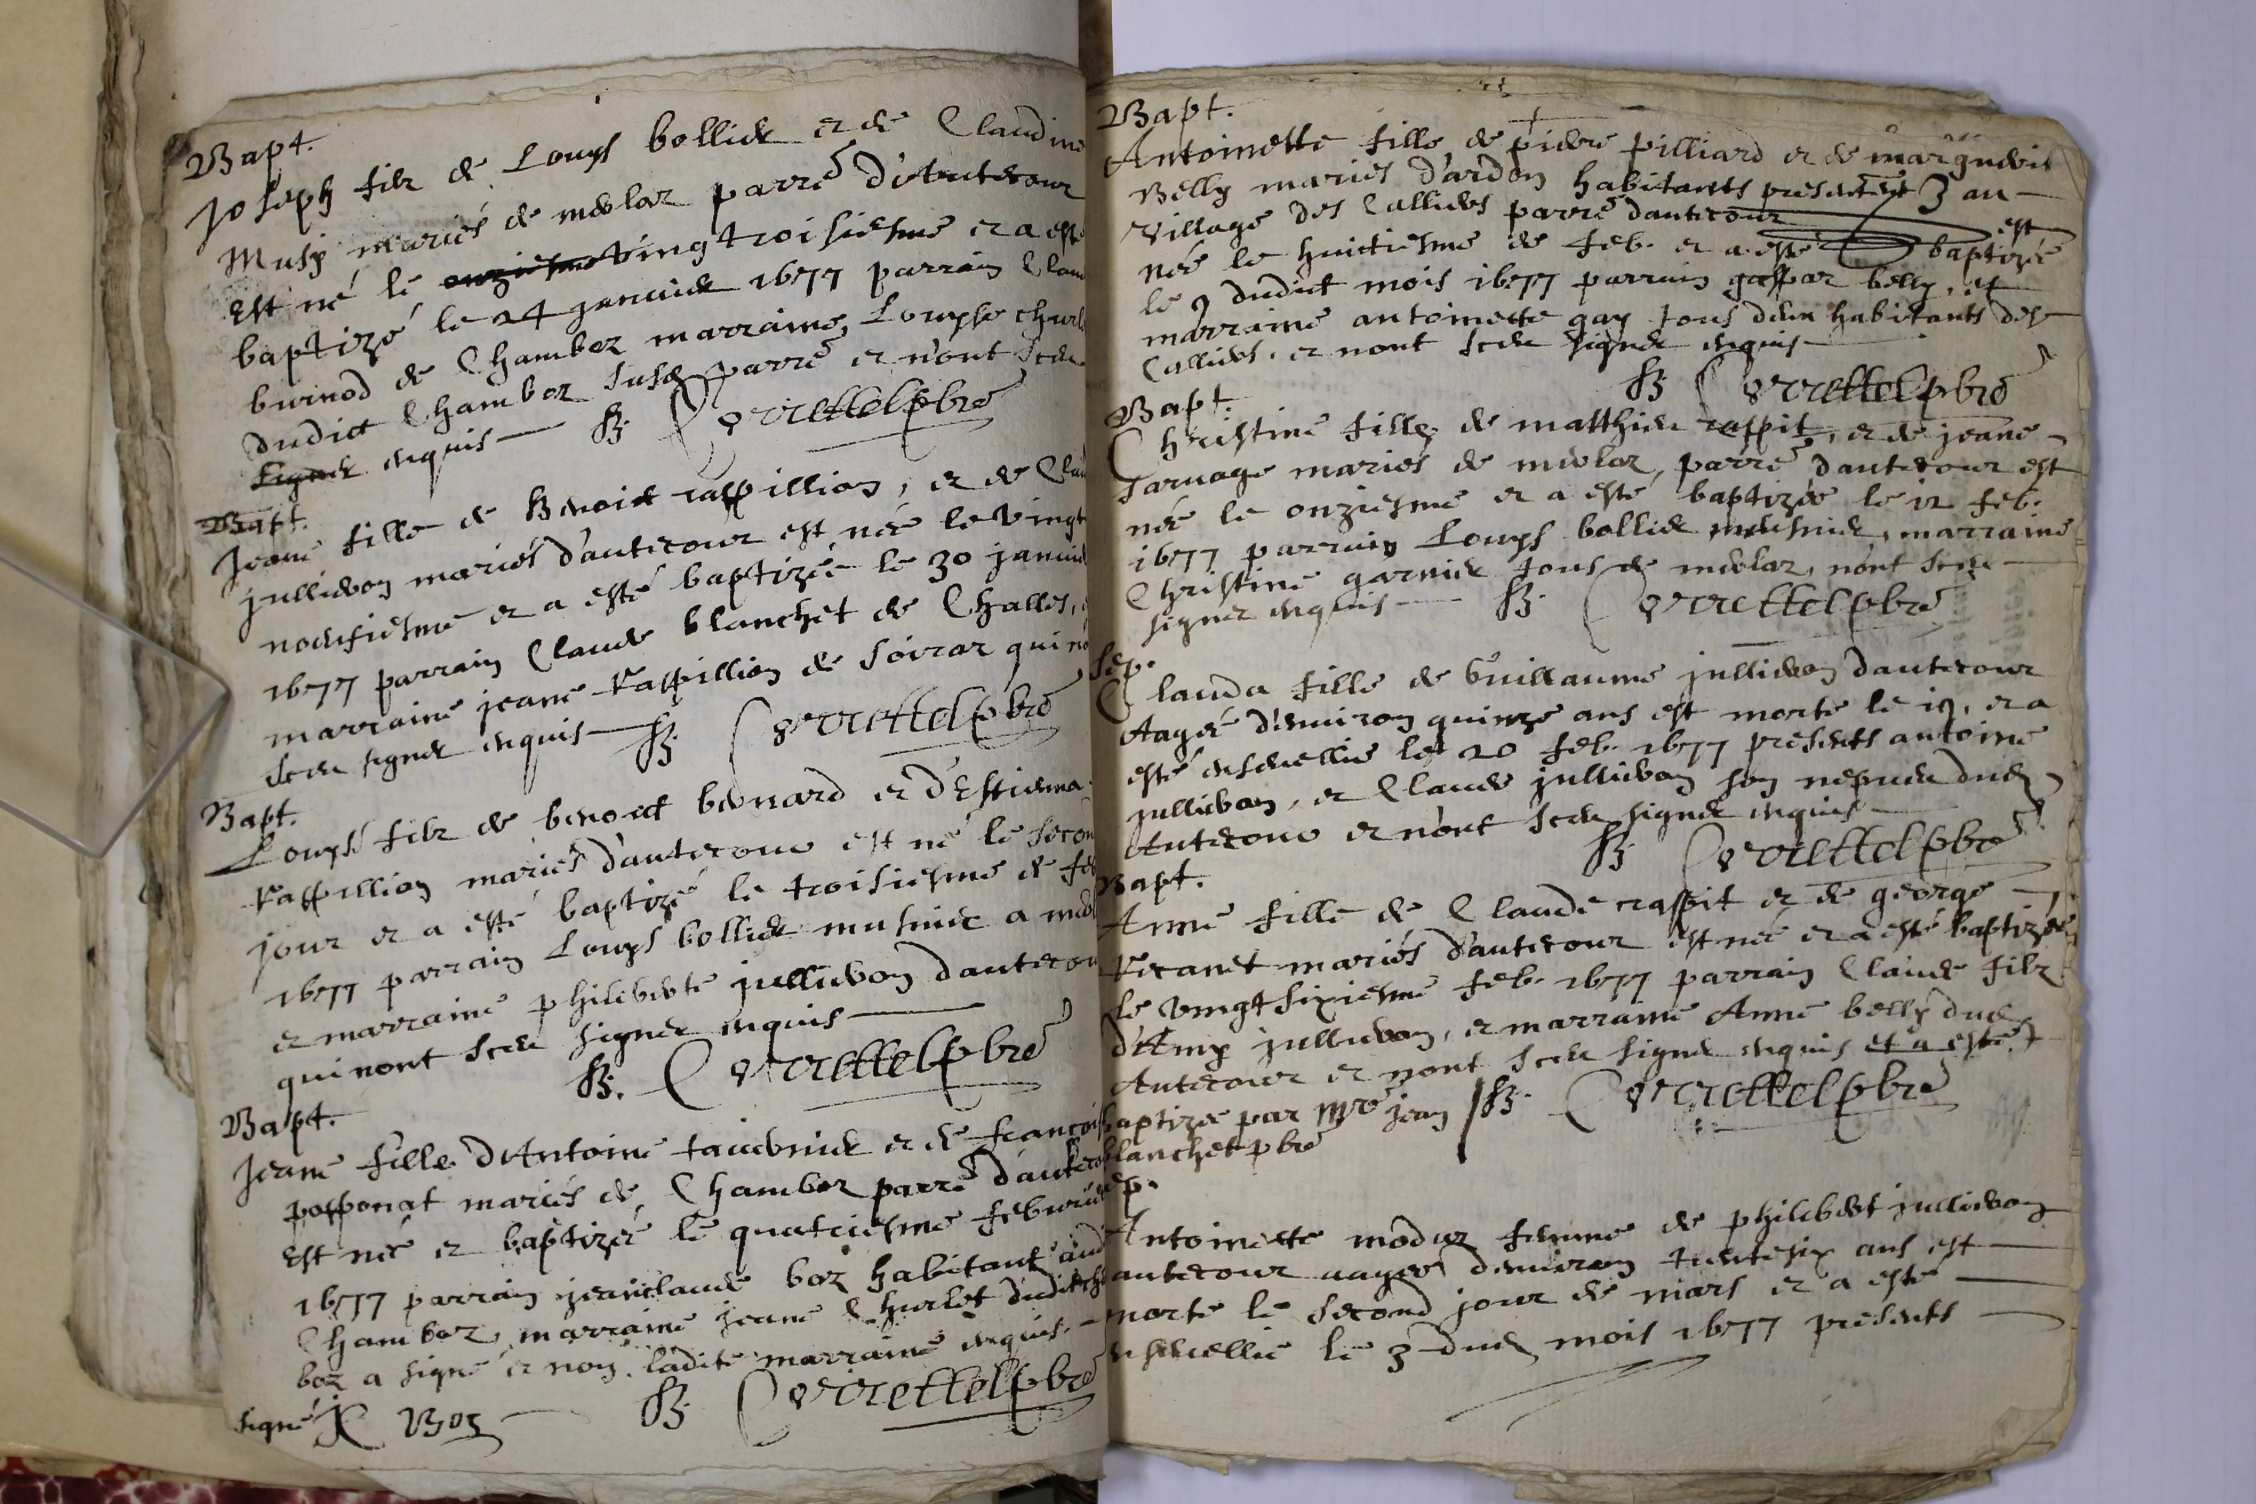 Bapt.
Joseph filz de Louys bollier et de Claudine
Musy mariés de merlaz parre d'Autecour
Est né le onziesme vingt troisiesme et a esté
baptizé le 24 janvier 1677 parrain Clau
burnod de Chamboz marraine, Louyse churl
dudict Chamboz susd parre et n'ont sceu
signer enquis B Cerrettel pbre
Bapt.
Jeane fille de Benoict raffillion, et de Clau
jullieron mariés d'autecour est née le vingt
neufiesme et a esté baptizée le 30 janvier
1677 parrain Claude blanchet de Challes, e
marraine jeane Raffillion de soiraz qui no
sceu signer enquis B. Cerrettel pbre
Bapt.
Louys filz de benoict bernard et d'Estienna
Raffillion mariés d'autecour est né le secon
jour et a esté baptizé le troisiesme de feb
1677 parrain Louys bollier musnier a merl
et marraine philiberte jullieron dautecou
qui nont sceu signer enquis
B. Cerrettel pbre
Bapt.
Jeane fille d'Antoine tavernier et de francois
posponat mariés de Chamboz parre d'autecou
Est née et baptizée le quatriesme febvrier
1677 parrain jeanclaude boz habitant aud
Chamboz, marraine jeane Churlet dudict ch
boz a signé et non ladite marraine enquis.
signé JC Boz B. Cerrettel pbre
Bapt.
Antoinette fille de pierre pilliard et de marguerit
Belly mariés d'ardon habitants presentement au
village des Calliers parre dautecour est
née le huictiesme de feb. et a esté baptizée
le 9 dudict mois 1677 parrain gaspar belly, et
marraine antoinette gay tous deux habitants des
Calliers. et nont sceu signer enquis
B Cerrettel pbre
Bapt.
Christine fille de matthieu raspit, et de jeane
Tarvage mariés de merlaz, parre dautecour est
née le onziesme et a esté baptizée le 12 feb.
1677 parrain Louys bollier musnier, marraine
Christine garnier tous de merlaz, n'ont sceu
signer enquis B. Cerrettel pbre
Sep.
Clauda fille de Guillaume jullieron dautecour
Aagée d'environ quinze ans est morte le 19, et a
esté ensevellie le 20 feb. 1677 presents antoine
jullieron, et Claude jullieron son nepveu dud
Autecour et n'ont sceu signer enquis
B. Cerrettel pbre
Bapt.
Anne fille de Claude craspit et de george
Recanet mariés d'autecour est née et a esté baptizée
le vingt sixiesme feb. 1677 parrain Claude filz
d'Emy jullieron, et marraine Anne belly dud
Autecour et nont sceu signer enquis et a esté
baptizée par mre jean B. Cerrettel pbre
blanchet pbre
Sep.
Antoinette moduz femme de philibert jullieron
autecour aagée denviron trentesix ans est
morte le second jour de mars et a esté
ensevellie le 3 dud mois 1677 presents